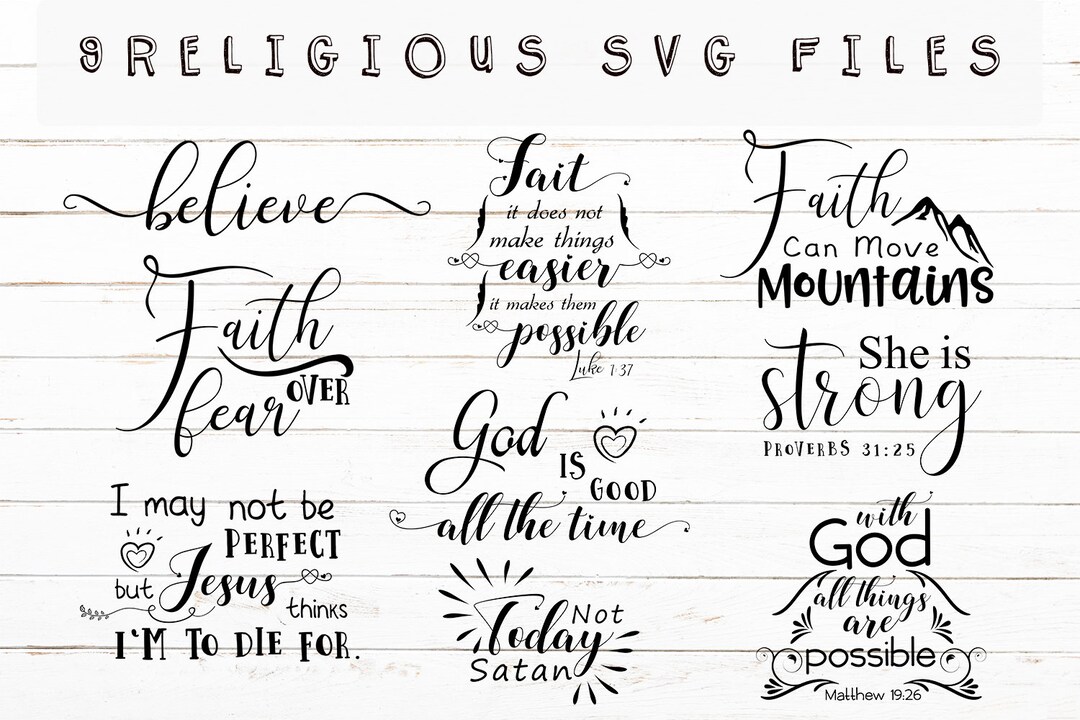 9 RELIGIOUS SVG FILES
believe
Faith
OVER
fear
I may not be
PERFECT
but Jesus
thinks
I'M TO DIE FOR.
Fait
it does not
make things
easier
it makes them
possible
Luke 1:37
God
IS
GOOD
all the time
Not
Today
Satan
Faith
Can Move
Mountains
She is
strong
PROVERBS 31:25
with
God
all things
are
possible
Matthew 19:26